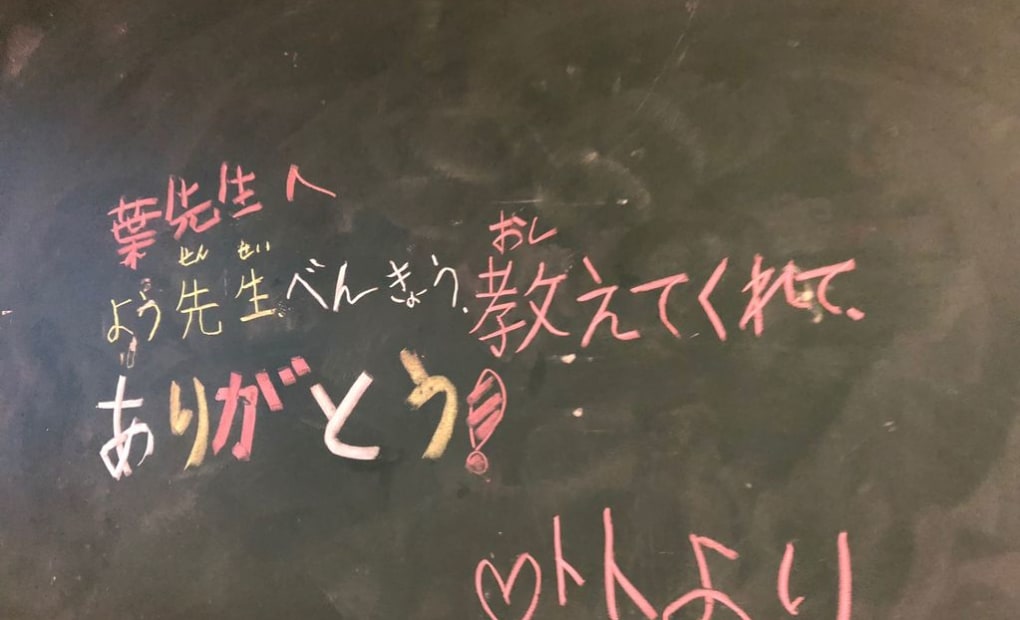 葉先生へ
せん せい おし
よう先生べんきょう教えてくれて、
ありがとう!
♡トトより